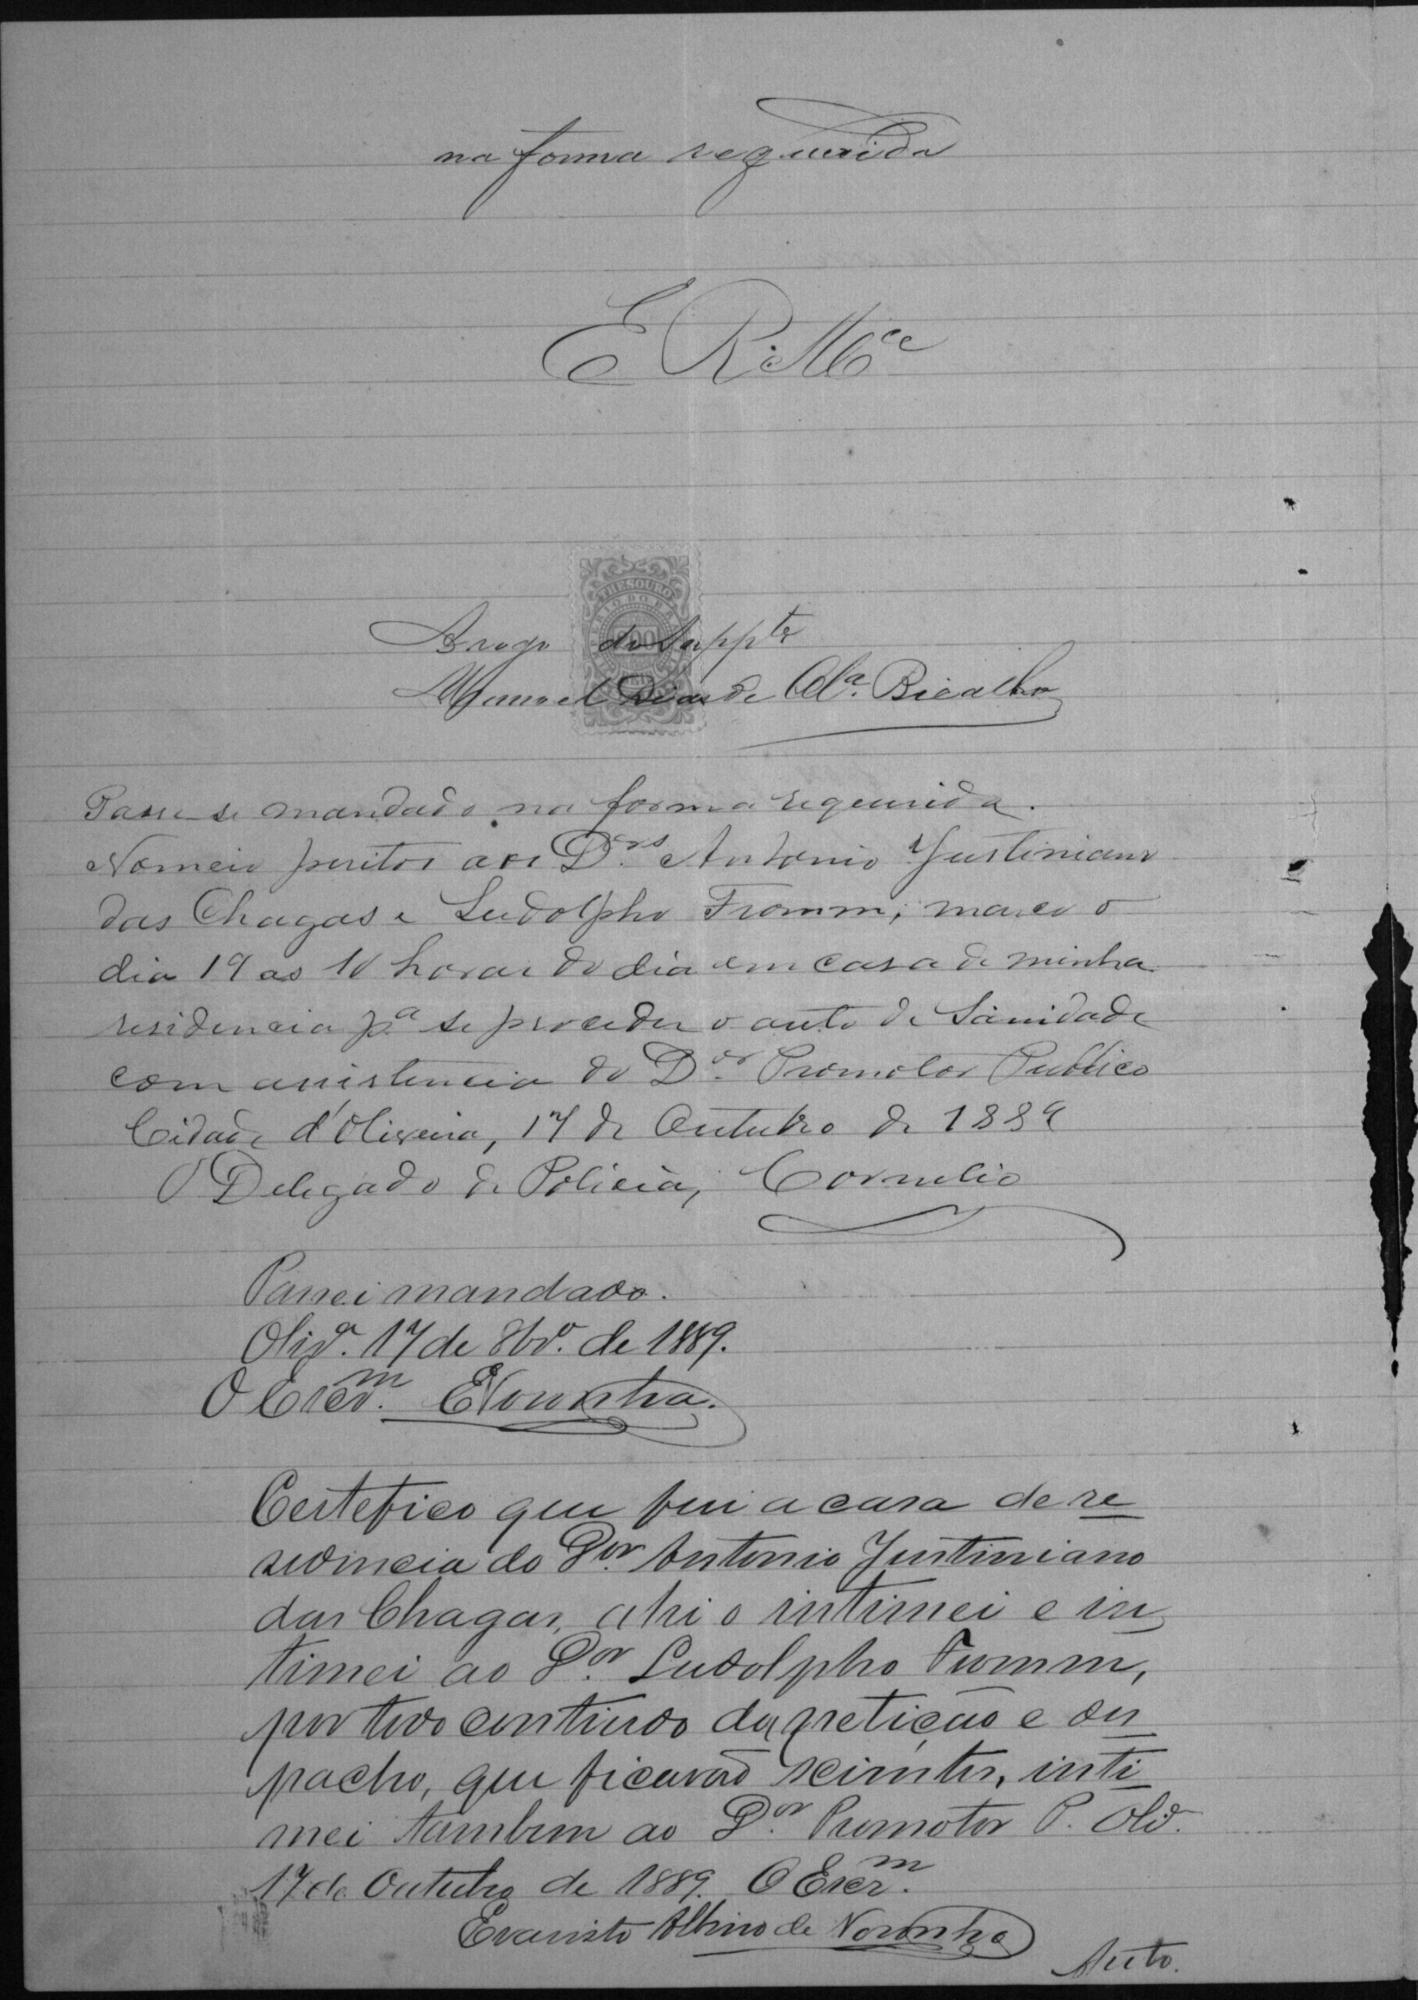 na forma requerida
E R. Mce
THESOURO
200
Arogo do Suppte
Manoel Dias de Olª. Bicalho
Passe-se mandado na forma requerida.
Nomeio peritos aos Drs. Antonio Justiniano
das Chagas e Ludolpho Fromm; marco o
dia 19 as 10 horas do dia em casa de minha
residencia pª se proceder o auto de Sanidade
com assistencia do Dor. Promotor Publico
Cidade d'Oliveira, 17 de Outubro de 1889
O Delegado de Policia, Cornelio
Passei mandado.
Olivª. 17 de 8brº. de 1889.
O Escrm. ENoronha.
Certefico que fui a casa de re
sidencia do Dor. Antonio Justiniano
das Chagas, ahi o intimei e in
timei ao Dor. Ludolpho Fromm,
por todo contiudo da petição e des
pacho, que ficarão scientes, inti
mei tambem ao Dor. Promotor P. Olivª.
17 de Outubro de 1889. O Escrm.
Evaristo Albino de Noronha
Auto.